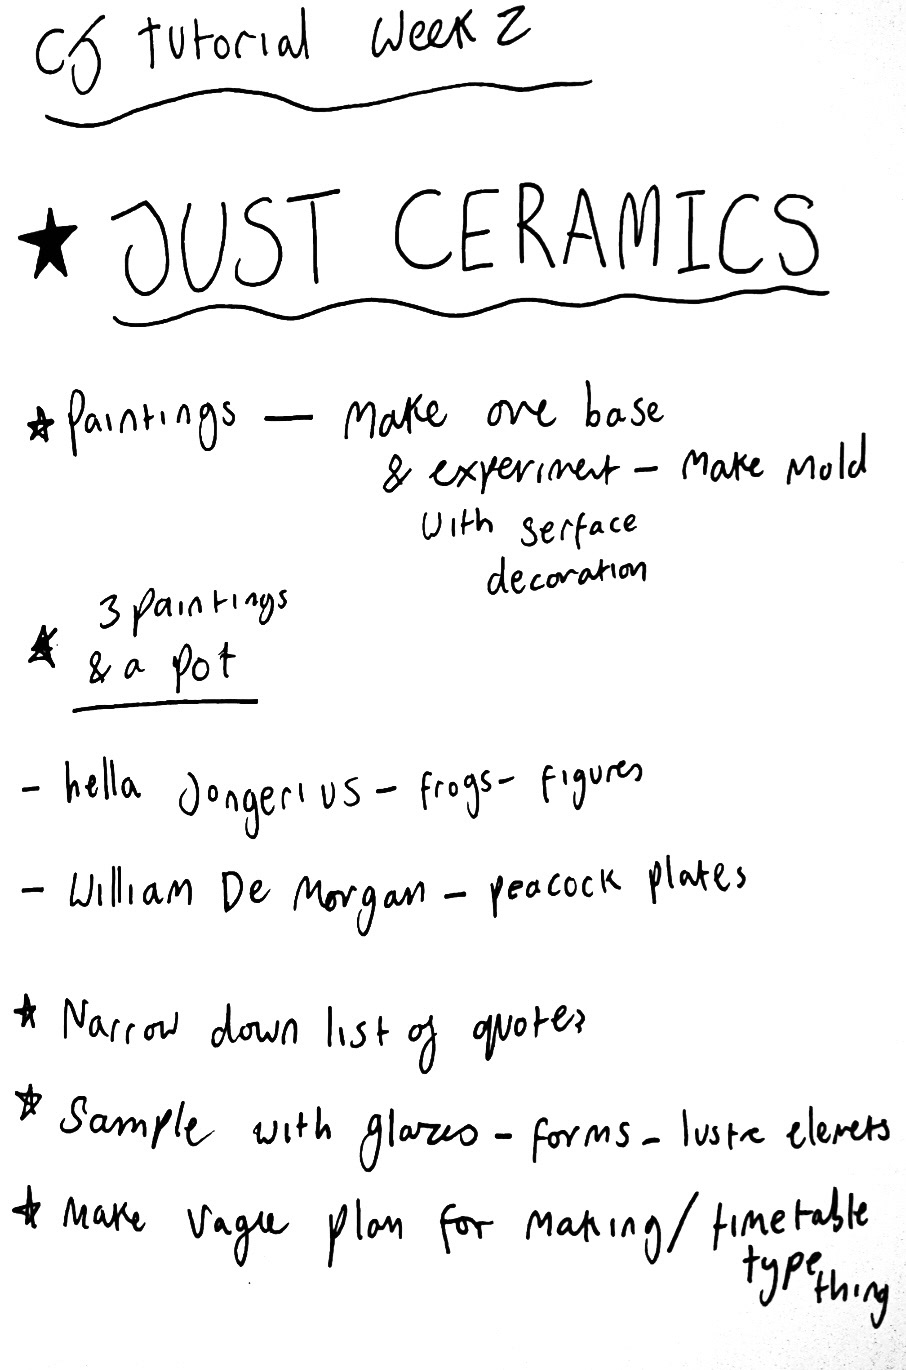 CJ tutorial week 2
JUST CERAMICS
Paintings — Make one base
& experiment - Make Mold
with serface
decoration
3 paintings
& a pot
- hella Jongerius - frogs - figures
- William De Morgan - peacock plates
Narrow down list of quotes
Sample with glazes - forms - lustre elemets
Make vague plan for making/timetable
type
thing